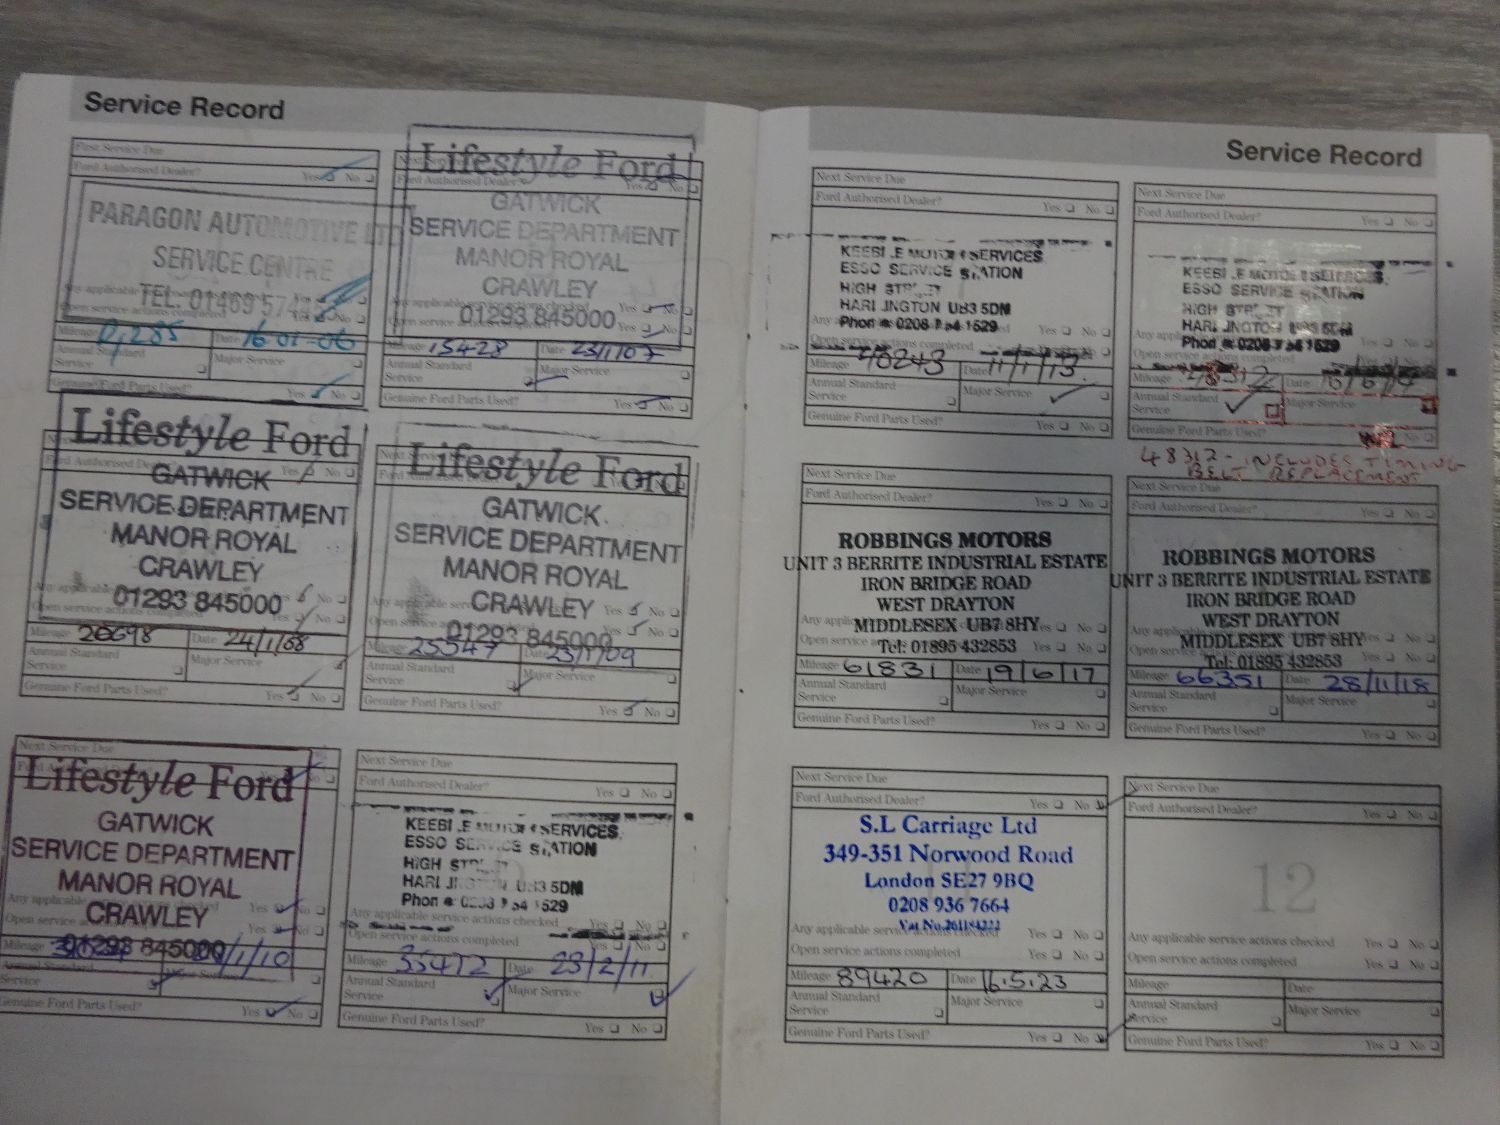 Service Record
First Service Due
Ford Authorised Dealer? Yes No
PARAGON AUTOMOTIVE LTD
SERVICE CENTRE
TEL: 01469
Any applicable
Open service actions completed
Mileage Date 16-01-06
Annual Standard Service Major Service
Genuine Ford Parts Used? Yes No
Lifestyle Ford
Ford Authorised Dealer? Yes No
GATWICK
SERVICE DEPARTMENT
MANOR ROYAL
CRAWLEY
Any applicable service actions checked Yes No
01293 845000
Open service Yes No
Mileage 15428 Date 23/1/07
Annual Standard Service Major Service
Genuine Ford Parts Used? Yes No
Lifestyle Ford
Yes No
GATWICK
SERVICE DEPARTMENT
MANOR ROYAL
CRAWLEY
01293 845000
Open service actions completed
Mileage 20698 Date 24/1/08
Annual Standard Service Major Service
Genuine Ford Parts Used? Yes No
Lifestyle Ford
GATWICK
SERVICE DEPARTMENT
MANOR ROYAL
CRAWLEY
Yes No
01293 845000
Mileage 25547 Date 23/1/09
Annual Standard Service Major Service
Genuine Ford Parts Used? Yes No
Next Service Due
Lifestyle Ford
GATWICK
SERVICE DEPARTMENT
MANOR ROYAL
CRAWLEY
Any applicable checked Yes No
Open service Yes No
01293 845000
Mileage /1/10
Annual Standard Service Major Service
Genuine Ford Parts Used? Yes No
Next Service Due
Ford Authorised Dealer? Yes No
SERVICES
ESSO SERVICE STATION
HIGH
UB3 5DM
Any applicable service actions checked Yes No
Open service actions completed Yes No
Mileage 35472 Date 23/2/11
Annual Standard Service Major Service
Genuine Ford Parts Used? Yes No
Service Record
Next Service Due
Ford Authorised Dealer? Yes No
SERVICES
ESSO SERVICE STATION
HIGH
HARLINGTON UB3 5DM
Any Yes No
Open service actions completed
Mileage 40243 Date 11/1/13
Annual Standard Service Major Service
Genuine Ford Parts Used? Yes No
Next Service Due
Ford Authorised Dealer? Yes No
ESSO SERVICE STATION
HIGH
Any applicable Yes No
Open service actions completed
Mileage Date
Annual Standard Service Major Service
Genuine Ford Parts Used? No
48312 - INCLUDES TIMING
BELT REPLACEMENT
Next Service Due
Ford Authorised Dealer? Yes No
ROBBINGS MOTORS
UNIT 3 BERRITE INDUSTRIAL ESTATE
IRON BRIDGE ROAD
WEST DRAYTON
MIDDLESEX UB7 8HY
Tel: 01895 432853
Any Yes No
Open service Yes No
Mileage 61831 Date 19/6/17
Annual Standard Service Major Service
Genuine Ford Parts Used? Yes No
Next Service Due
Ford Authorised Dealer? Yes No
ROBBINGS MOTORS
UNIT 3 BERRITE INDUSTRIAL ESTATE
IRON BRIDGE ROAD
WEST DRAYTON
MIDDLESEX UB7 8HY
Tel: 01895 432853
Any applicable Yes No
Yes No
Mileage 66351 Date 28/11/18
Annual Standard Service Major Service
Genuine Ford Parts Used? Yes No
Next Service Due
Ford Authorised Dealer? Yes No
S.L Carriage Ltd
349-351 Norwood Road
London SE27 9BQ
0208 936 7664
Vat No.
Any applicable service actions checked Yes No
Open service actions completed Yes No
Mileage 89420 Date 16.5.23
Annual Standard Service Major Service
Genuine Ford Parts Used? Yes No
Next Service Due
Ford Authorised Dealer? Yes No
12
Any applicable service actions checked Yes No
Open service actions completed Yes No
Mileage Date
Annual Standard Service Major Service
Genuine Ford Parts Used? Yes No